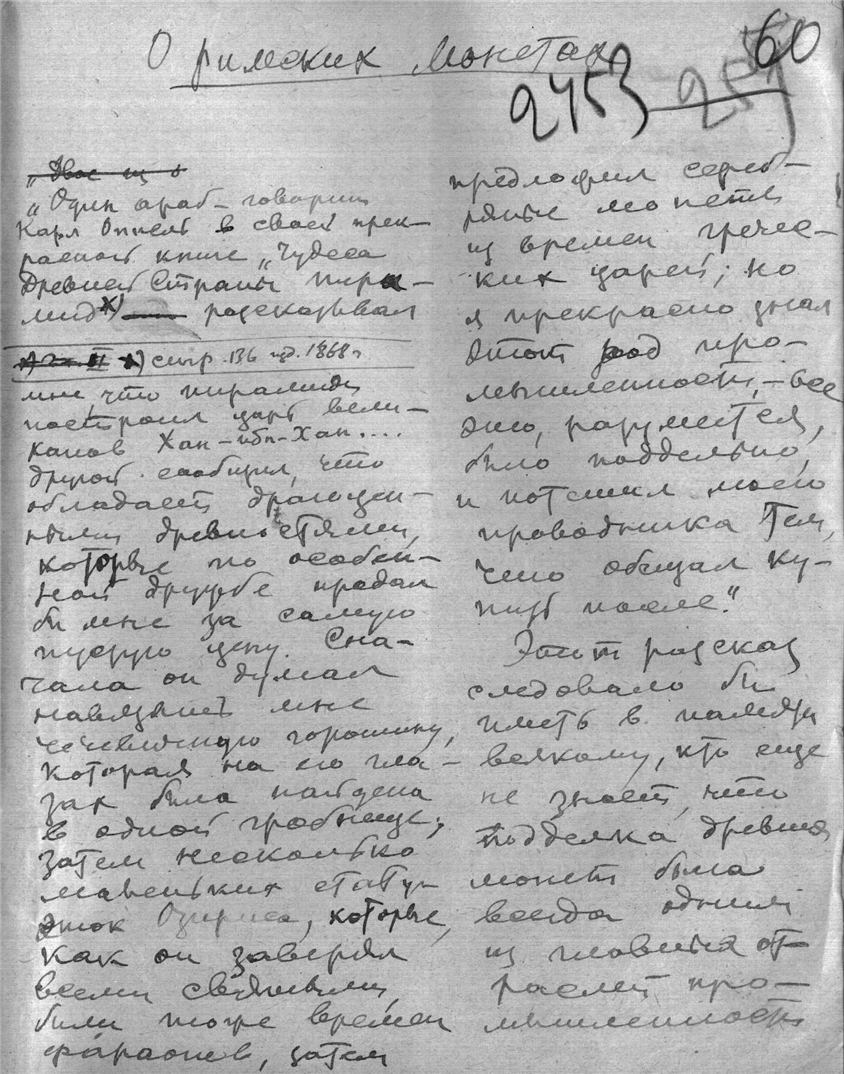 О римских монетах
60
2453 257
„Двое из
„Один араб – говорит
Карл Оппель в своей прек-
расной книге „Чудеса
древней Страны пира-
мид x) рассказывал
x) стр. 136 изд. 1868 г
мне, что пирамиды
построил царь вели-
канов Хан-ибн-Хан....
другой сообщил, что
обладает драгоцен-
ными древностями,
которые по особен-
ной дружбе продал
бы мне за самую
пустую цену. Сна-
чала он думал
навязать мне
чечевичную горошину,
которая на его гла-
зах была найдена
в одной гробнице;
затем несколько
маленьких стату-
эток Озириса, которые,
как он заверял
всеми святыми,
были тоже времен
фараонов, затем
предложил сереб-
ряные монеты
из времен гречес-
ких царей; но
я прекрасно знал
этот род про-
мышленности, – все
это, разумеется,
было поддельно,
и потешил моего
проводника тем,
чего обещал ку-
пить после."
Этот рассказ
следовало бы
иметь в памяти
всякому, кто еще
не знает, что
подделка древних
монет была
всегда одним
из главных от-
раслей про-
мышленности